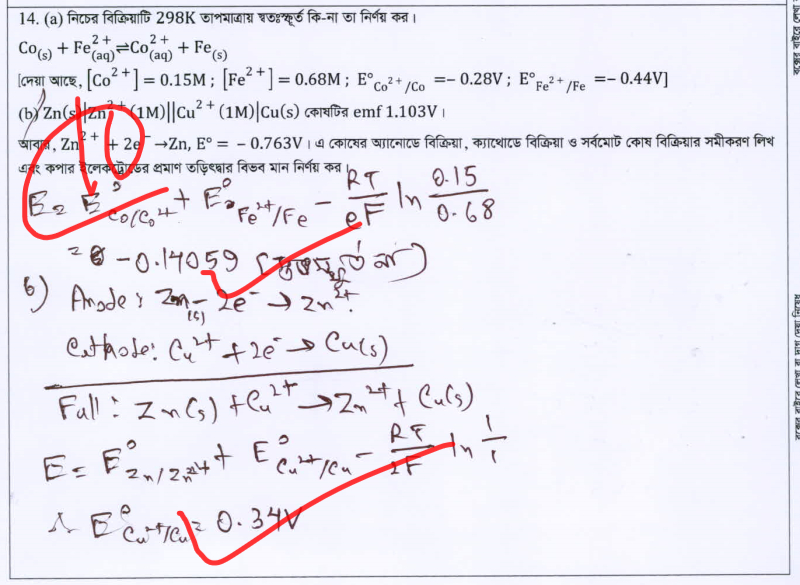 14. (a) নিচের বিক্রিয়াটি 298K তাপমাত্রায় স্বতঃস্ফূর্ত কি-না তা নির্ণয় কর।
Co(s) + Fe²⁺(aq) ⇌ Co²⁺(aq) + Fe(s)
[দেয়া আছে, [Co²⁺] = 0.15M ; [Fe²⁺] = 0.68M ; E°Co²⁺/Co = − 0.28V ; E°Fe²⁺/Fe = − 0.44V]
(b) Zn(s)|Zn²⁺(1M)||Cu²⁺(1M)|Cu(s) কোষটির emf 1.103V।
আবার, Zn²⁺ + 2e⁻ → Zn, E° = − 0.763V। এ কোষের অ্যানোডে বিক্রিয়া, ক্যাথোডে বিক্রিয়া ও সর্বমোট কোষ বিক্রিয়ার সমীকরণ লিখ
এবং কপার ইলেকট্রোডের প্রমাণ তড়িৎদ্বার বিভব মান নির্ণয় কর।
10
E = E°Co/Co²⁺ + E°Fe²⁺/Fe − RT/eF ln 0.15/0.68
= − 0.14059 (স্বতঃস্ফূর্ত না)
b) Anode: Zn(s) − 2e⁻ → Zn²⁺
Cathode: Cu²⁺ + 2e⁻ → Cu(s)
Full: Zn(s) + Cu²⁺ → Zn²⁺ + Cu(s)
E = E°Zn/Zn²⁺ + E°Cu²⁺/Cu − RT/2F ln 1/1
∴ E°Cu²⁺/Cu = 0.34V